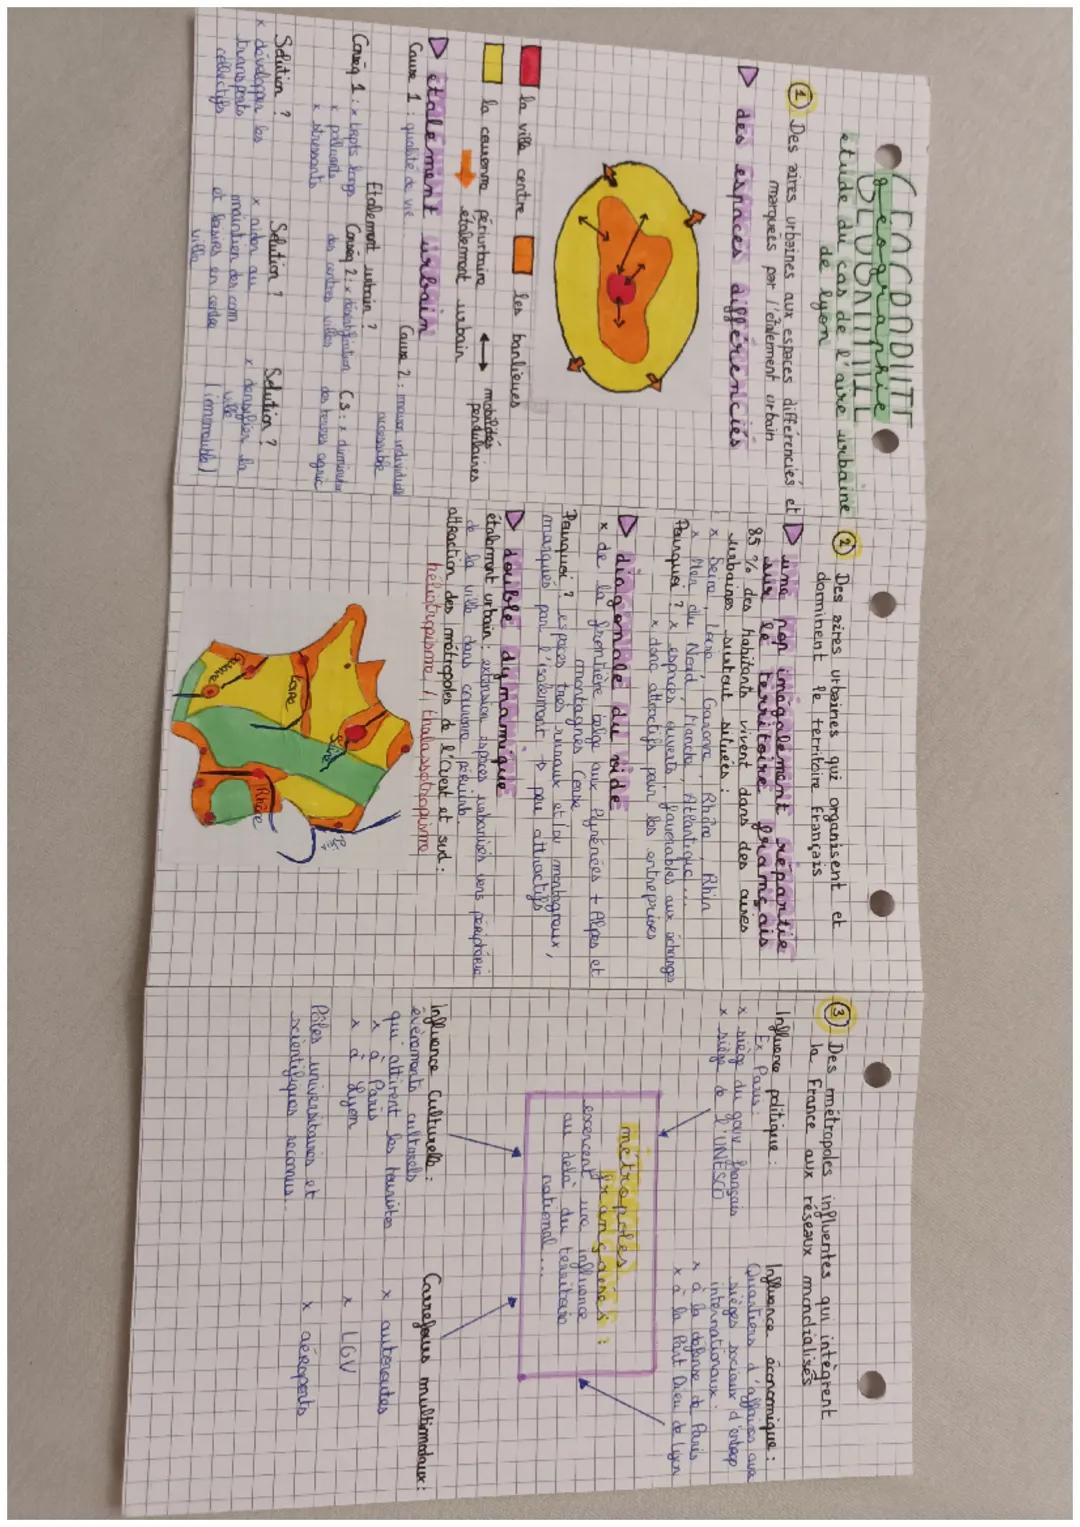 géographie
étude du cas de l'aire urbaine
de Lyon
① Des aires urbaines aux espaces différenciés et
marquées par l'étalement urbain
des espaces différenciés
la ville centre
les banlieues
la couronne périurbaine
mobilités
pendulaires
étalement urbain
étalement urbain
Cause 1 : qualité de vie
Cause 2 : moyen individuel
accessible
Etalement urbain ?
Conséq 1 : x trajets longs
x polluants
x stressants
Conséq 2 : x désertification
des centres villes
C3 : x diminution
des terres agric
Solution ?
x développer les
transports
collectifs
Solution ?
x aider au
maintien des com
et loisirs en centre
ville
Solution ?
x densifier la
ville
(immeuble)
② Des aires urbaines qui organisent et
dominent le territoire français
une pop inégalement répartie
sur le territoire français
85 % des habitants vivent dans des aires
urbaines surtout situées :
x Seine, Loire, Garonne, Rhône, Rhin
x Mer du Nord, Manche, Atlantique...
Pourquoi ? x espaces ouverts, favorables aux échanges
x donc attractifs pour les entreprises
diagonale du vide
x de la frontière belge aux Pyrénées + Alpes et
montagnes Corse
Pourquoi ? espaces très ruraux et/ou montagneux,
marqués par l'isolement → peu attractifs
double dynamique
étalement urbain : extension espaces urbanisés vers périphérie
de la ville dans couronne périurb.
attraction des métropoles de l'Ouest et sud :
héliotropisme / thalassotropisme
Seine
Loire
Garonne
Rhône
Rhin
③ Des métropoles influentes qui intègrent
la France aux réseaux mondialisés
Influence politique :
Ex Paris :
x siège du gouv français
x siège de l'UNESCO
Influence économique :
Quartiers d'affaires avec
sièges sociaux d'entrep
internationaux :
x à la défense de Paris
x à la Part Dieu de Lyon
métropoles
françaises :
exercent une influence
au delà du territoire
national...
Influence Culturelle :
évènements culturels
qui attirent les touristes
x à Paris
x à Lyon
Pôles universitaires et
scientifiques reconnus.
Carrefours multimodaux :
x autoroutes
x LGV
x aéroports